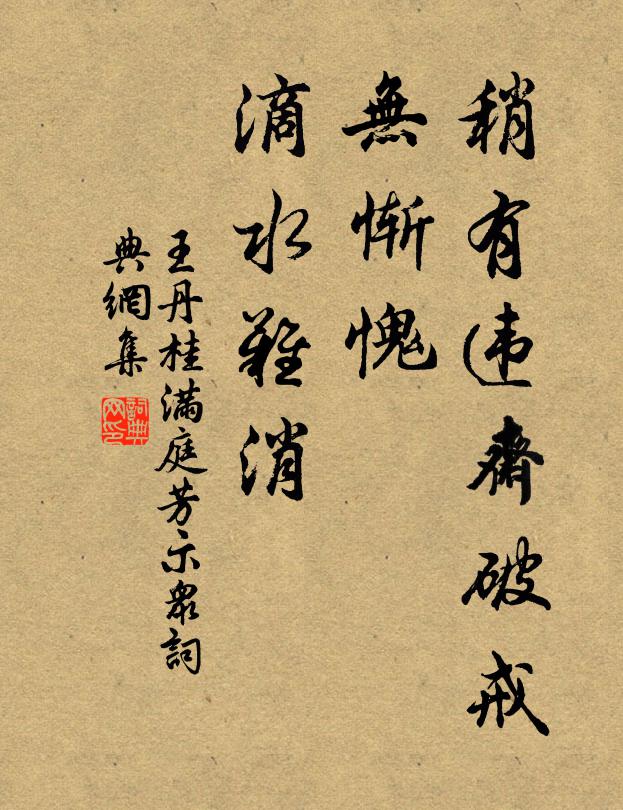 稍有违齋破戒
無慚愧
滴水難消
王丹桂滿庭芳示衆詞
典網集
詞典网印